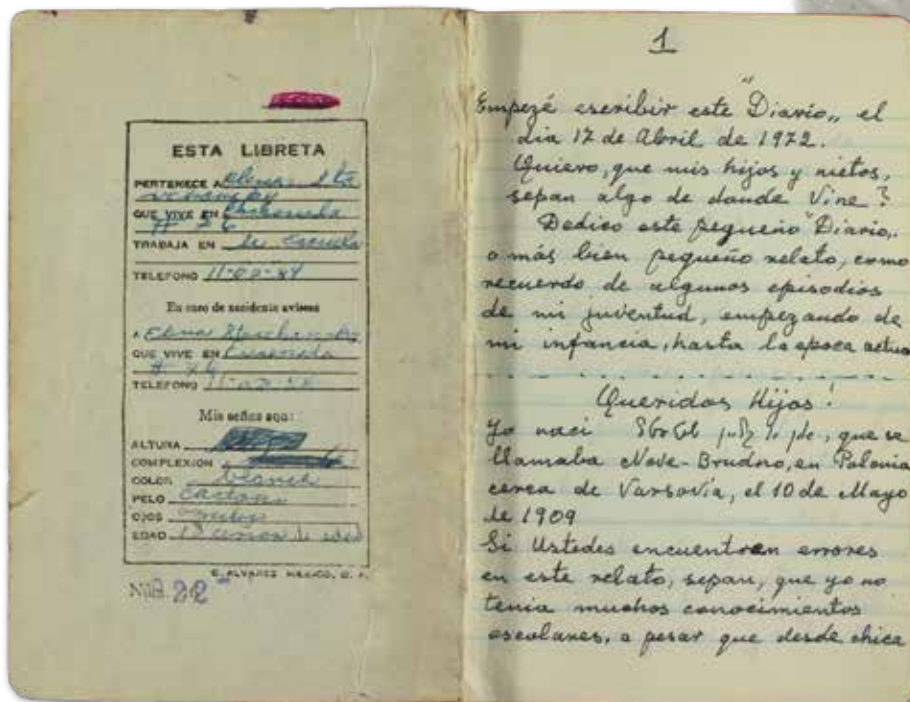 ESTA LIBRETA
PERTENECE A Elena
QUE VIVE EN Ensenada
# 26
TRABAJA EN la escuela
TELEFONO 11-07-84
En caso de accidente avisen
A Elena
QUE VIVE EN Ensenada
# 26
TELEFONO
Mis señas son:
ALTURA
COMPLEXION
COLOR blanca
PELO
OJOS
EDAD 12 años de edad
G. ALVAREZ MEXICO, D. F.
NÚM. 22
1
Empezé escribir este "Diario„ el
dia 17 de Abril de 1972.
Quiero, que mis hijos y nietos,
sepan algo de dounde Vine?
Dedico este pequeño "Diario„
o más bien pequeño relato, como
recuerdo de algunos episodios
de mi juventud, empezando de
mi infancia, hasta la epoca actua
Queridos Hijos!
Yo naci que se
llamaba Nove-Brudno, en Polonia
cerca de Varsovia, el 10 de Mayo
de 1909
Si Ustedes encuentran errores
en este relato, sepan, que yo no
tenia muchos conocimientos
escolares, a pesar que desde chica